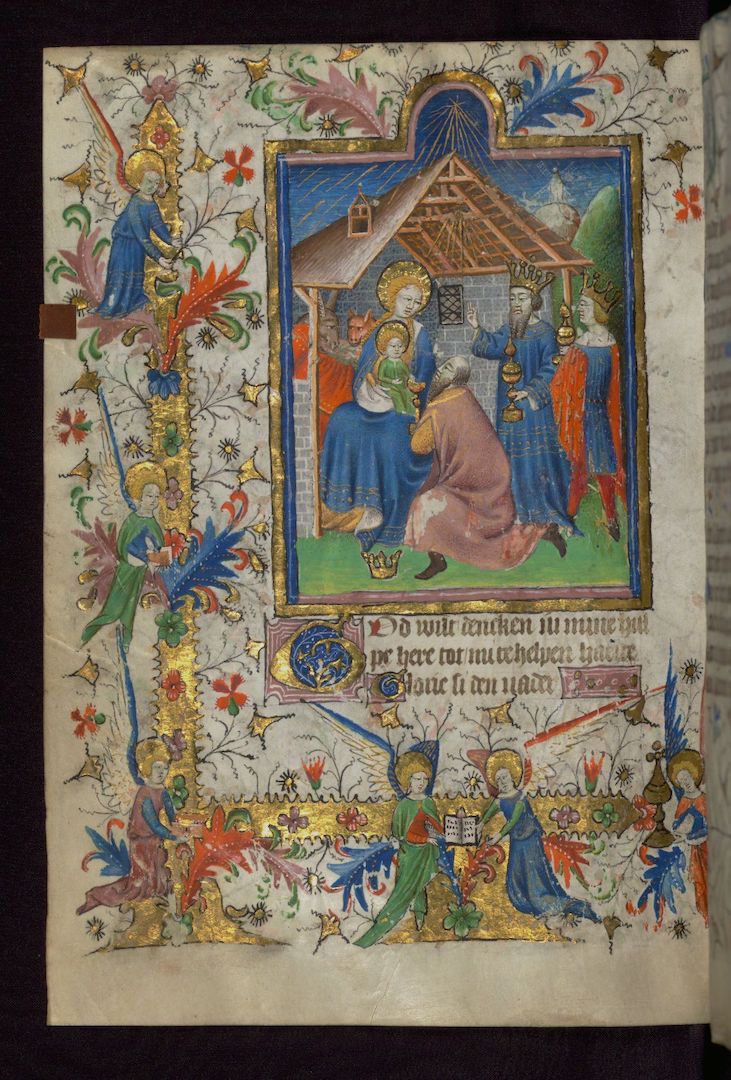 God wilt dencken in mine hul
pe here tot mi te helpen haeste
Glorie si den vader